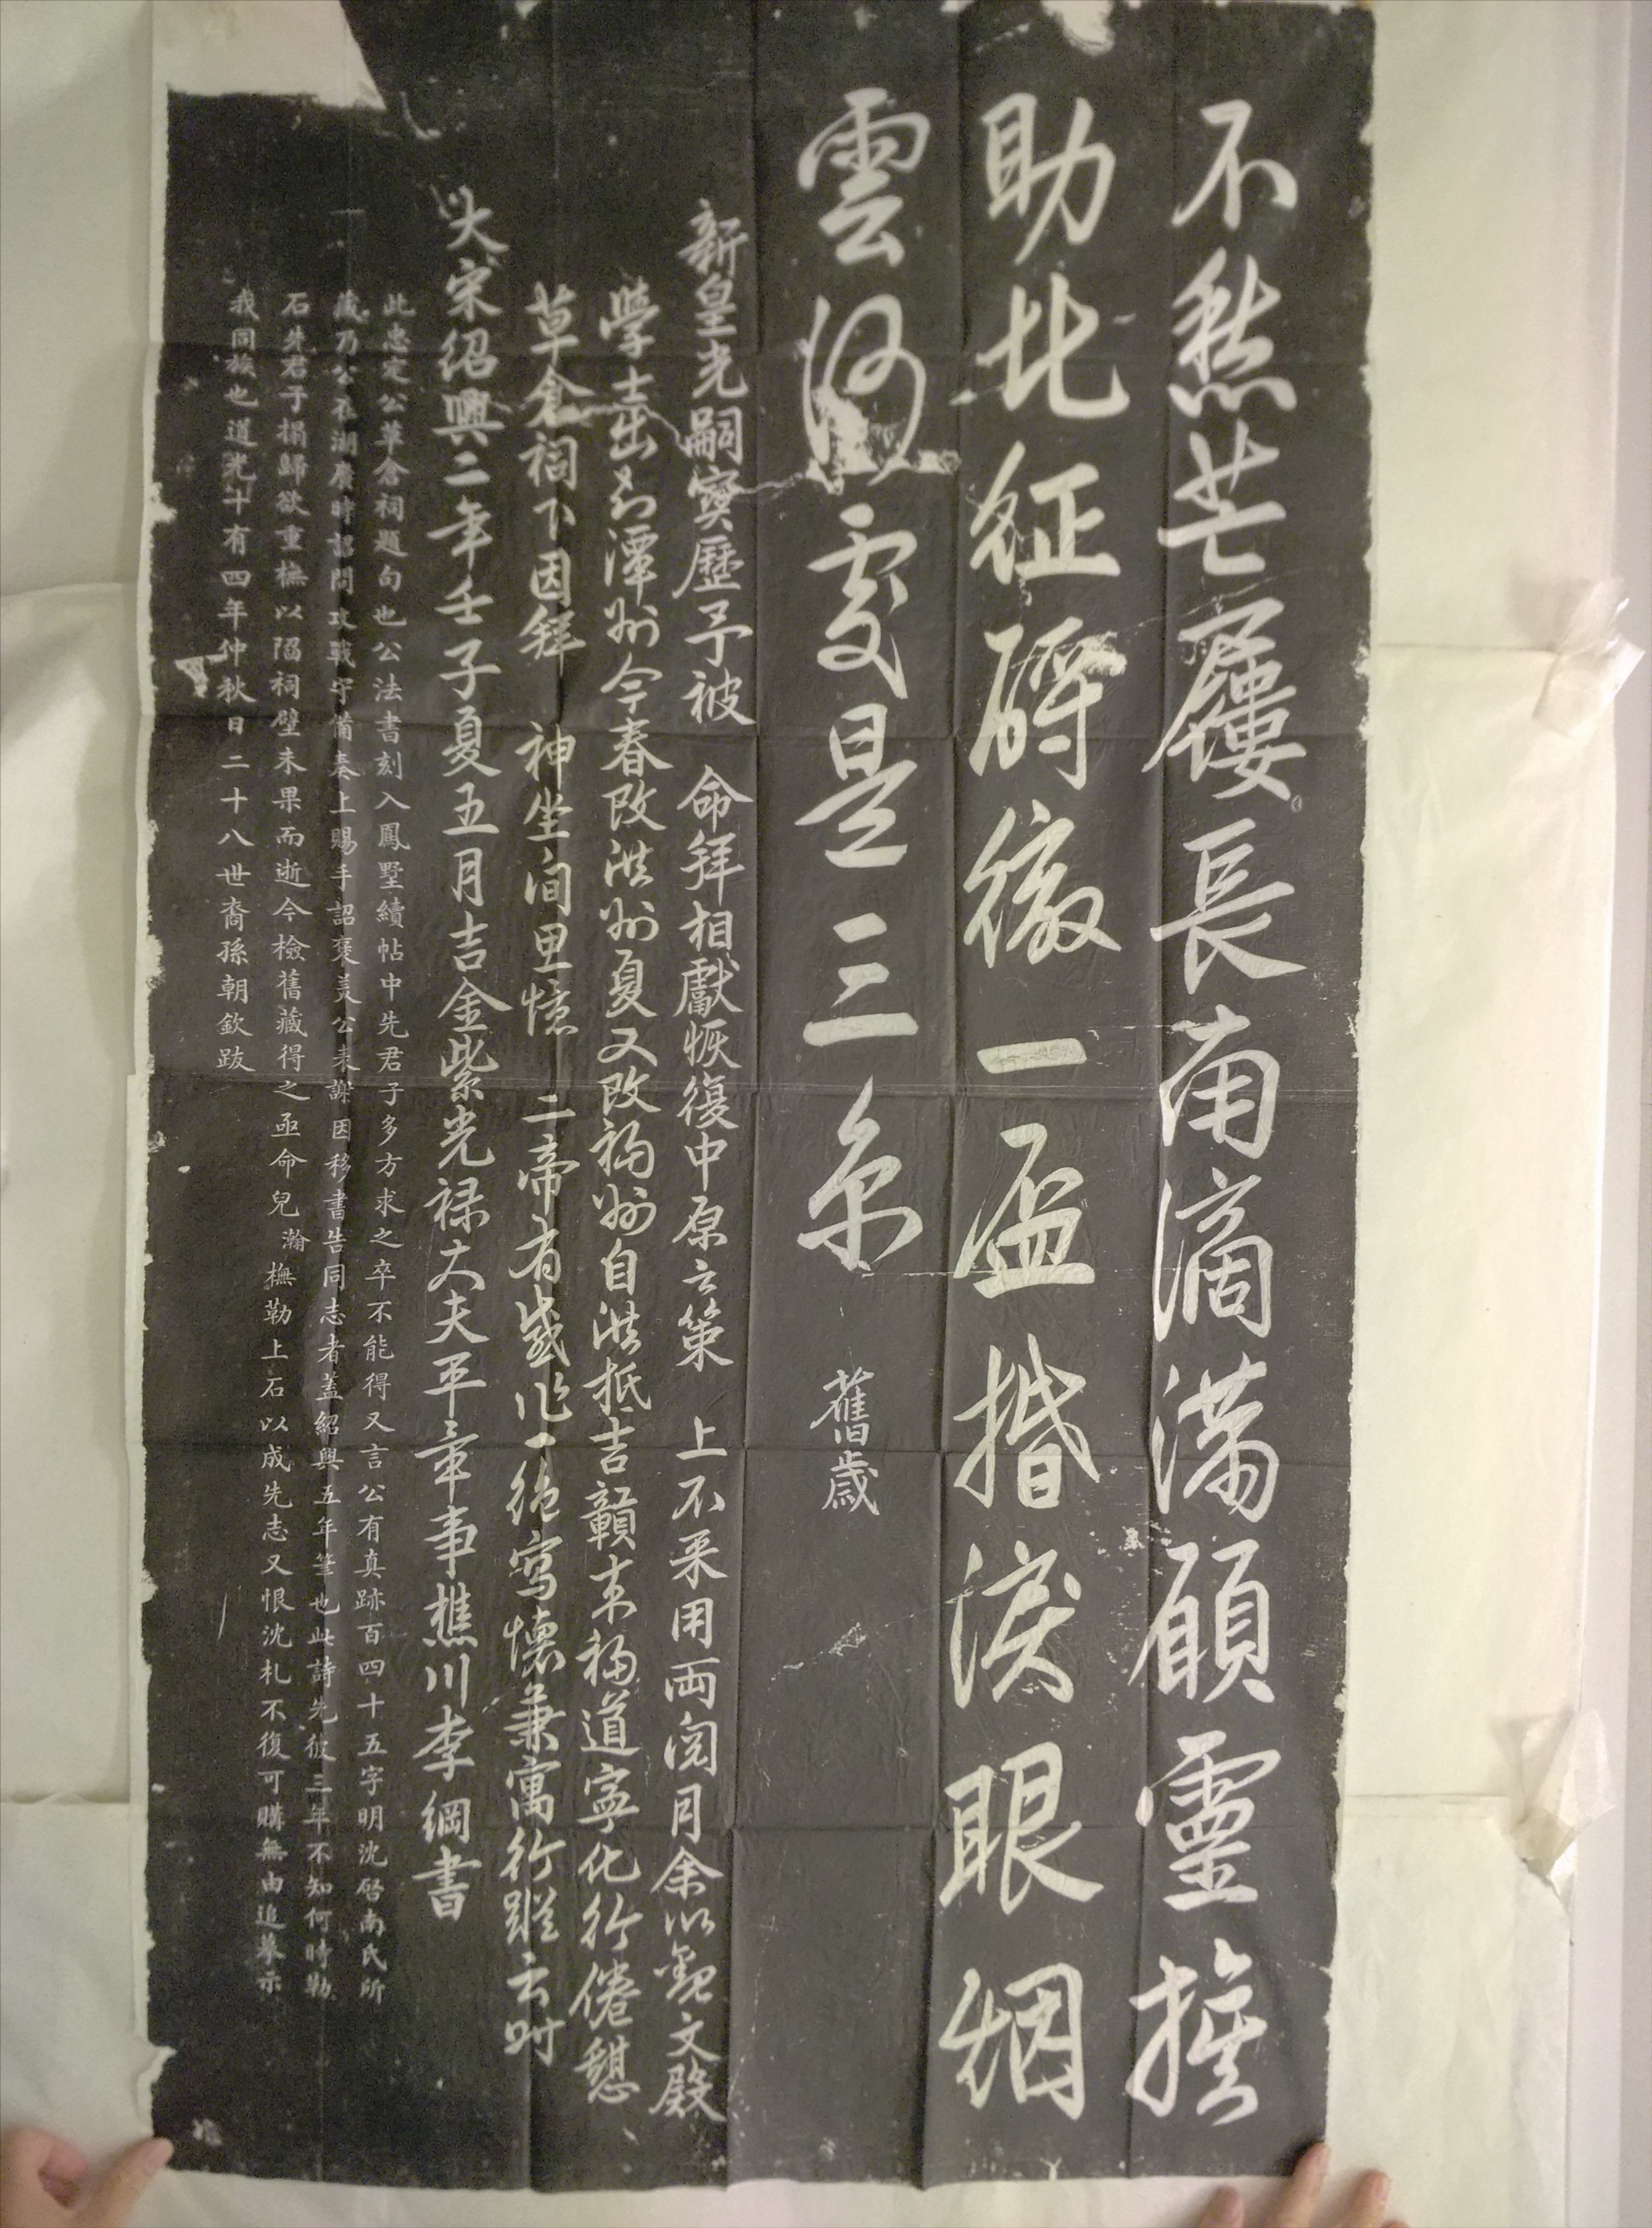 不愁芒屨長南謫滿願靈旗
助北征酹徹一盃揩淚眼烟
雲何處是三京 舊歲
新皇光嗣寶歷予被 命拜相獻恢復中原之策 上不采用両閱月余以觀文殿
學士出知潭州今春改洪州夏又改福州自洪抵吉贑来福道寧化行倦憩
草倉祠下因拜 神坐间思憶 二帝有感作一絕寫懷兼寓行蹤云时
大宋紹興二年壬子夏五月吉金紫光禄大夫平章事樵川李綱書
此忠定公草倉祠題句也公法書刻入鳳墅續帖中先君子多方求之卒不能得又言公有真跡百四十五字明沈啓南氏所
藏乃公在湖廣時詔問攻戰守備奏上賜手詔褒美公表謝因移書告同志者蓋紹興五年筆也此詩先彼三年不知何時勒
石先君子搨歸欲重橅以陷祠壁未果而逝今檢舊藏得之亟命兒瀚橅勒上石以成先志又恨沈札不復可購無由追摹示
我同族也道光十有四年仲秋日二十八世裔孫朝欽跋